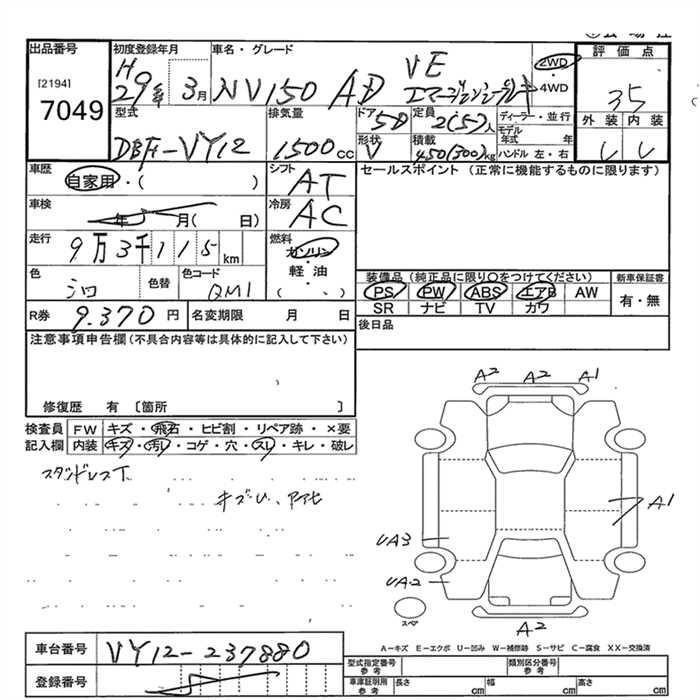 出品番号
[2194]
7049
初度登録年月
H
29年 3月
車名・グレード
NV150 AD VE
エマージェンシーブレーキ
2WD
・
4WD
評価点
3.5
外装 内装
型式
DBF-VY12
排気量
1500cc
ドア
5D
形状
V
定員
2(5)人
積載
450(300)kg
ディーラー・並行
モデル年式 年
ハンドル 左・右
車歴
自家用・( )
車検
年 月( 日)
走行
9万3千115km
色
シロ
色替
色コード
QM1
シフト
AT
冷房
AC
燃料
ガソリン
・
軽油
( 、 )
セールスポイント (正常に機能するものに限ります)
装備品(純正品に限り○をつけてください)
PS PW ABS エアB AW
SR ナビ TV カワ
新車保証書
有・無
R券 9.370円
名変期限 月 日
後日品
注意事項申告欄(不具合内容等は具体的に記入して下さい)
修復歴 有 〔箇所 〕
検査員記入欄
FW キズ・飛石・ヒビ割・リペア跡・×要
内装 キズ・汚レ・コゲ・穴・スレ・キレ・破レ
スタッドレスT
A2 A2 A1
A1
UA3
UA2
スペ
A2
A-キズ E-エクボ U-凹み W-補修跡 S-サビ C-腐食 XX-交換済
車台番号 VY12-237880
登録番号
型式指定番号
参考
類別区分番号
参考
車庫証明用
参考
長さ cm 幅 cm 高さ cm